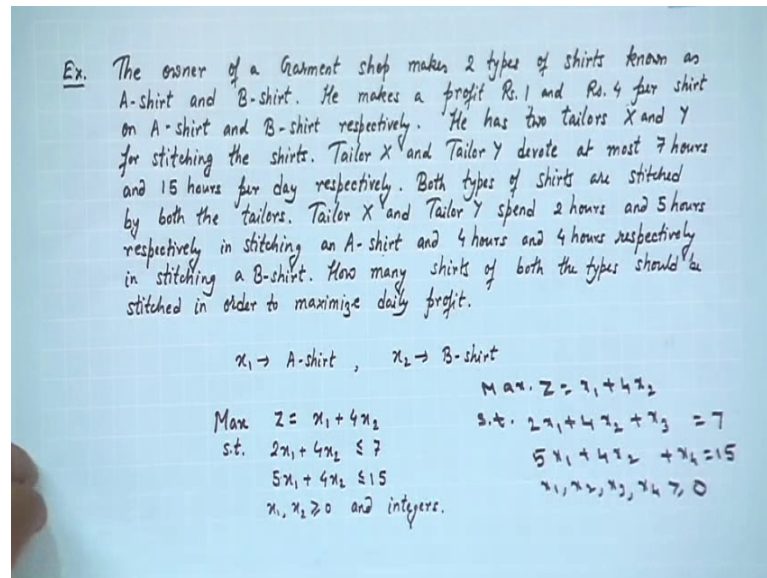 Ex. The owner of a Garment shop makes 2 types of shirts known as
A-shirt and B-shirt. He makes a profit Rs. 1 and Rs. 4 per shirt
on A-shirt and B-shirt respectively. He has two tailors X and Y
for stitching the shirts. Tailor X and Tailor Y devote at most 7 hours
and 15 hours per day respectively. Both types of shirts are stitched
by both the tailors. Tailor X and Tailor Y spend 2 hours and 5 hours
respectively in stitching an A-shirt and 4 hours and 4 hours respectively
in stitching a B-shirt. How many shirts of both the types should be
stitched in order to maximize daily profit.
x₁ → A-shirt , x₂ → B-shirt
Max Z = x₁ + 4x₂
s.t. 2x₁ + 4x₂ ≤ 7
5x₁ + 4x₂ ≤ 15
x₁, x₂ ≥ 0 and integers.
Max. Z = x₁ + 4x₂
s.t. 2x₁ + 4x₂ + x₃ = 7
5x₁ + 4x₂ + x₄ = 15
x₁, x₂, x₃, x₄ ≥ 0